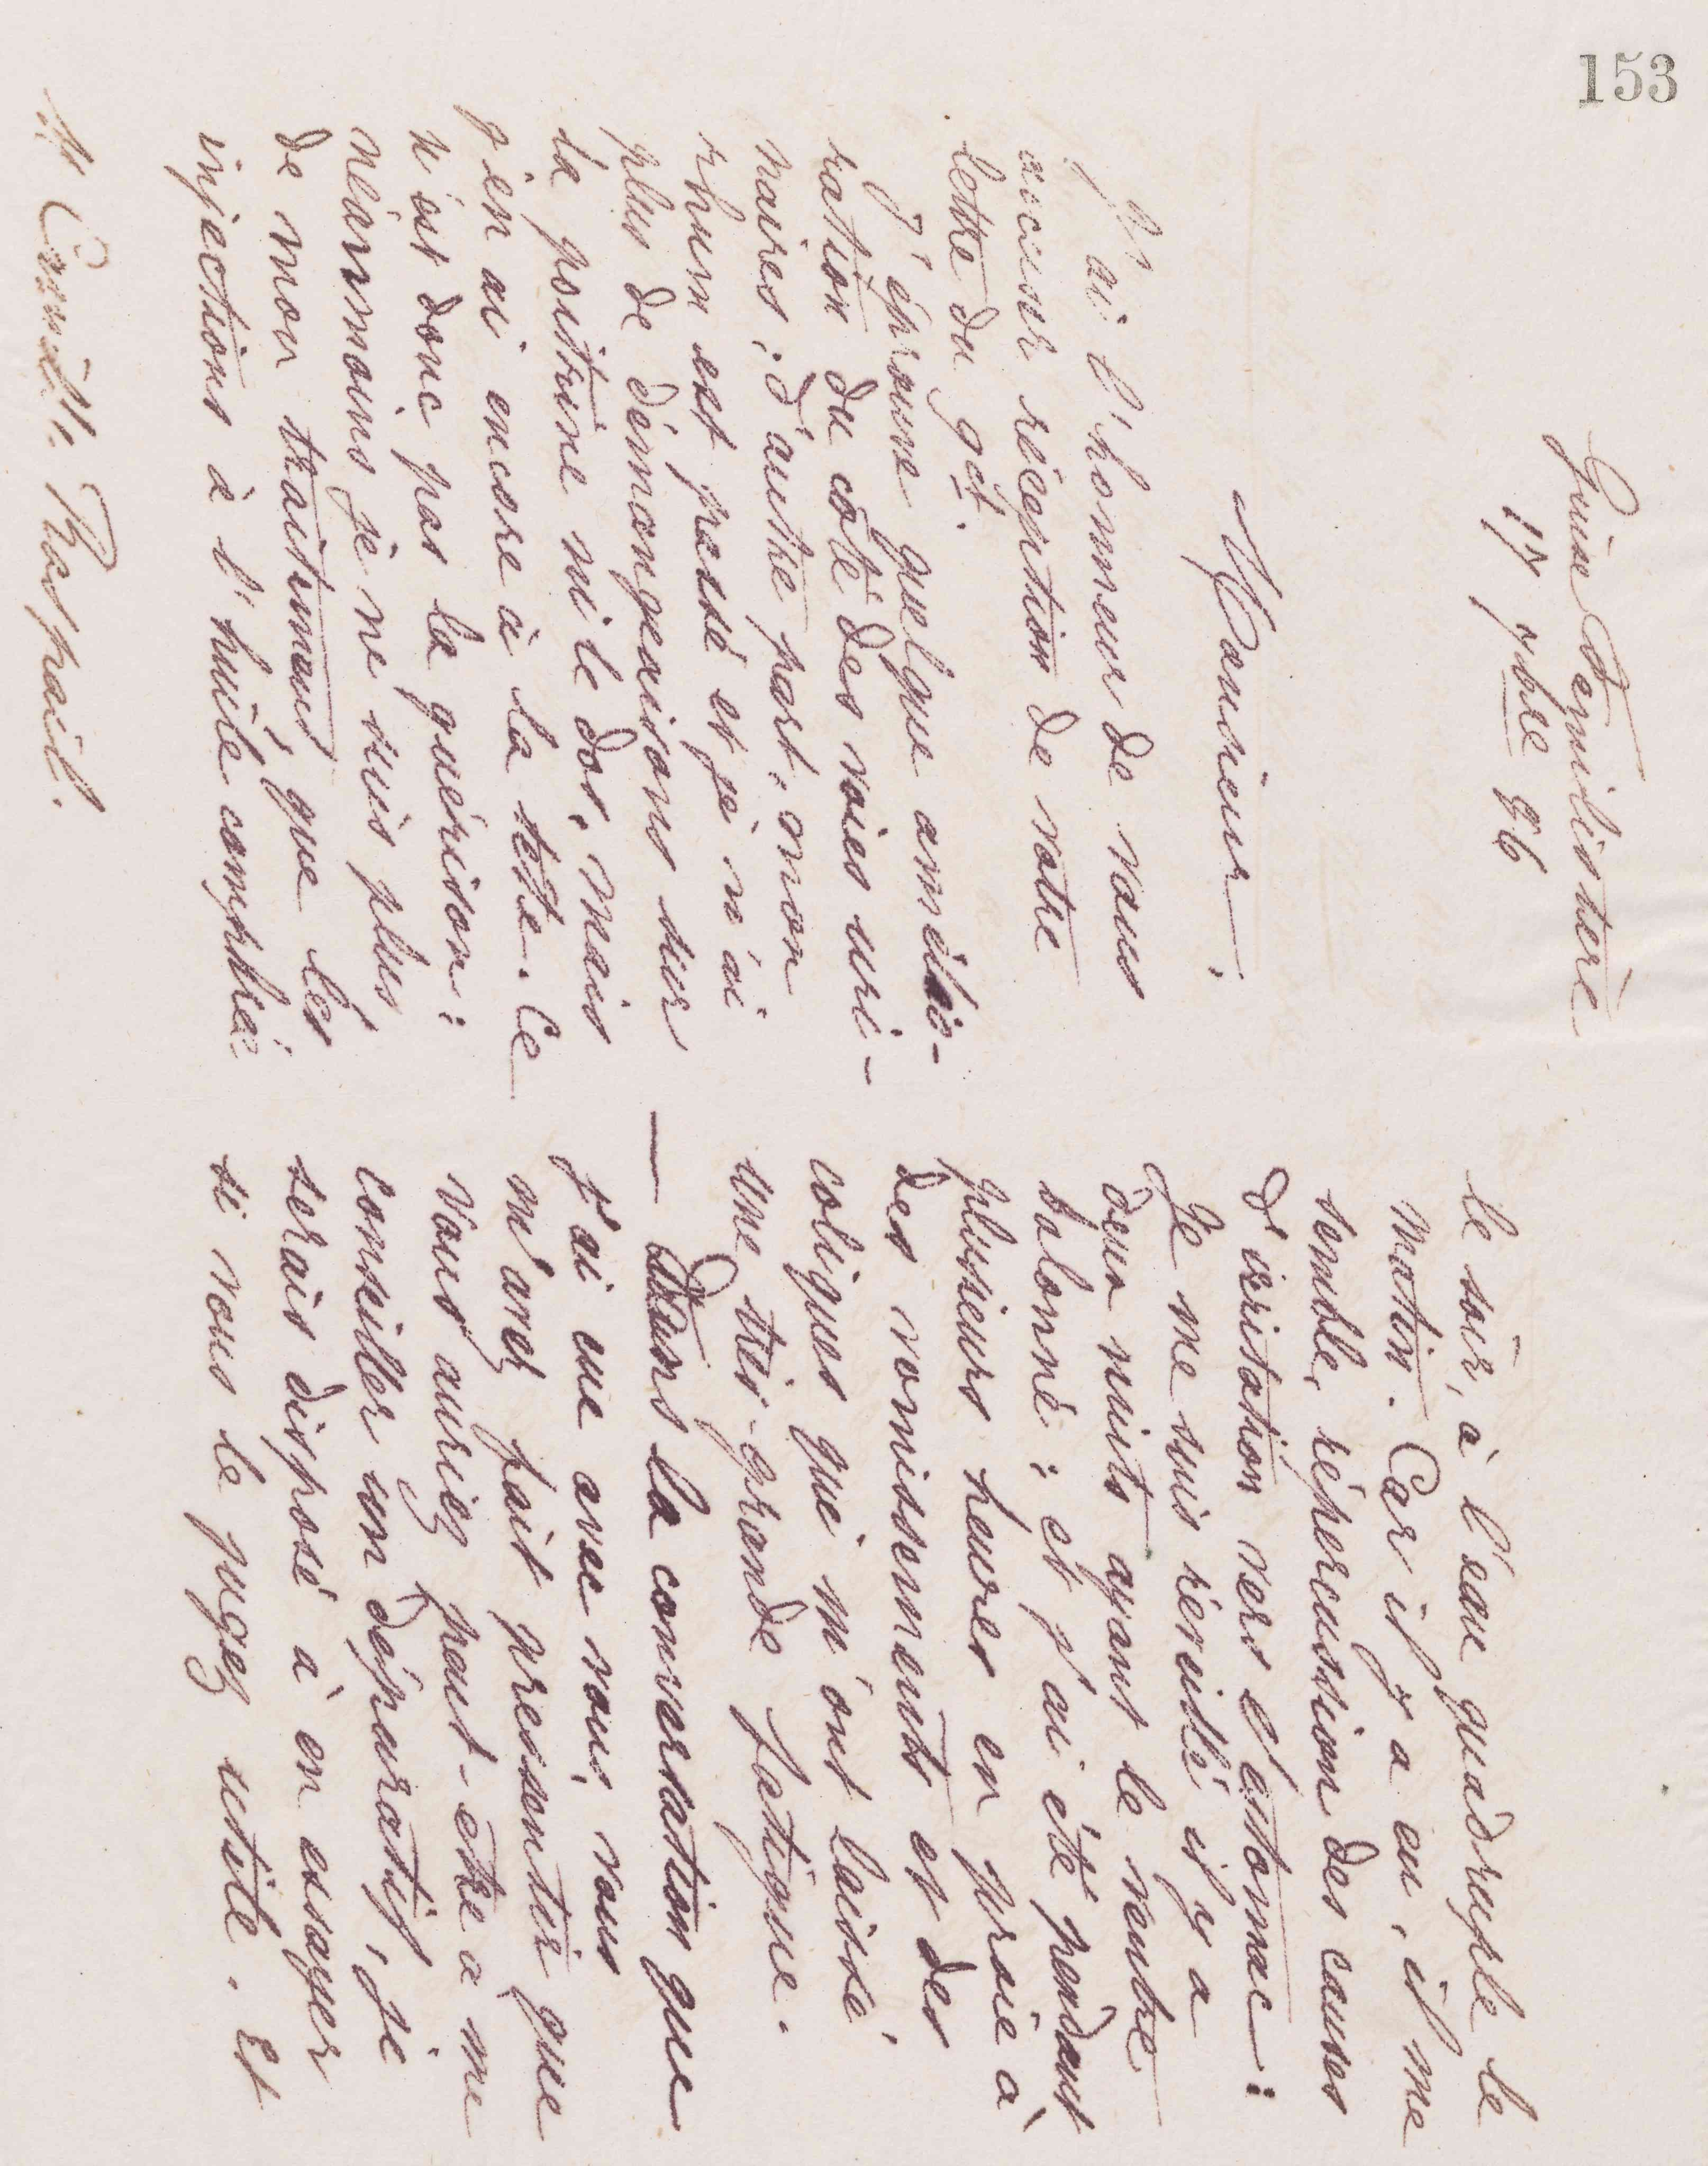 153
Guise Familistère
17 9bre 86
Monsieur,
J'ai l'honneur de vous
accuser réception de votre
lettre du 9 ct.
J'éprouve quelque amélio-
ration du côté des voies uri-
naires; d'autre part, mon
rhum est passé et je n'ai
plus de démangeaisons sur
la poitrine ni le dos, mais
j'en ai encore à la tête. Ce
n'est donc pas la guérison;
néanmoins je ne suis plus
de mon traitement, que les
injections à l'huile camphrée
M Camille Raspail.
le soir, à l'eau quadruple le
matin. Car il y a eu, il me
semble, répercussion des causes
d'irritation vers l'estomac:
Je me suis réveillé il y a
deux nuits ayant le ventre
balonné; et j'ai été pendant
plusieurs heures en proie à
des vomissements et des
coliques qui m'ont laissé
une très-grande fatigue.
— Dans la conversation que
j'ai eue avec vous, vous
m'avez fait pressentir que
vous auriez peut-être à me
conseiller un dépuratif, je
serais disposé à en essayer
si vous le jugez utile. Et